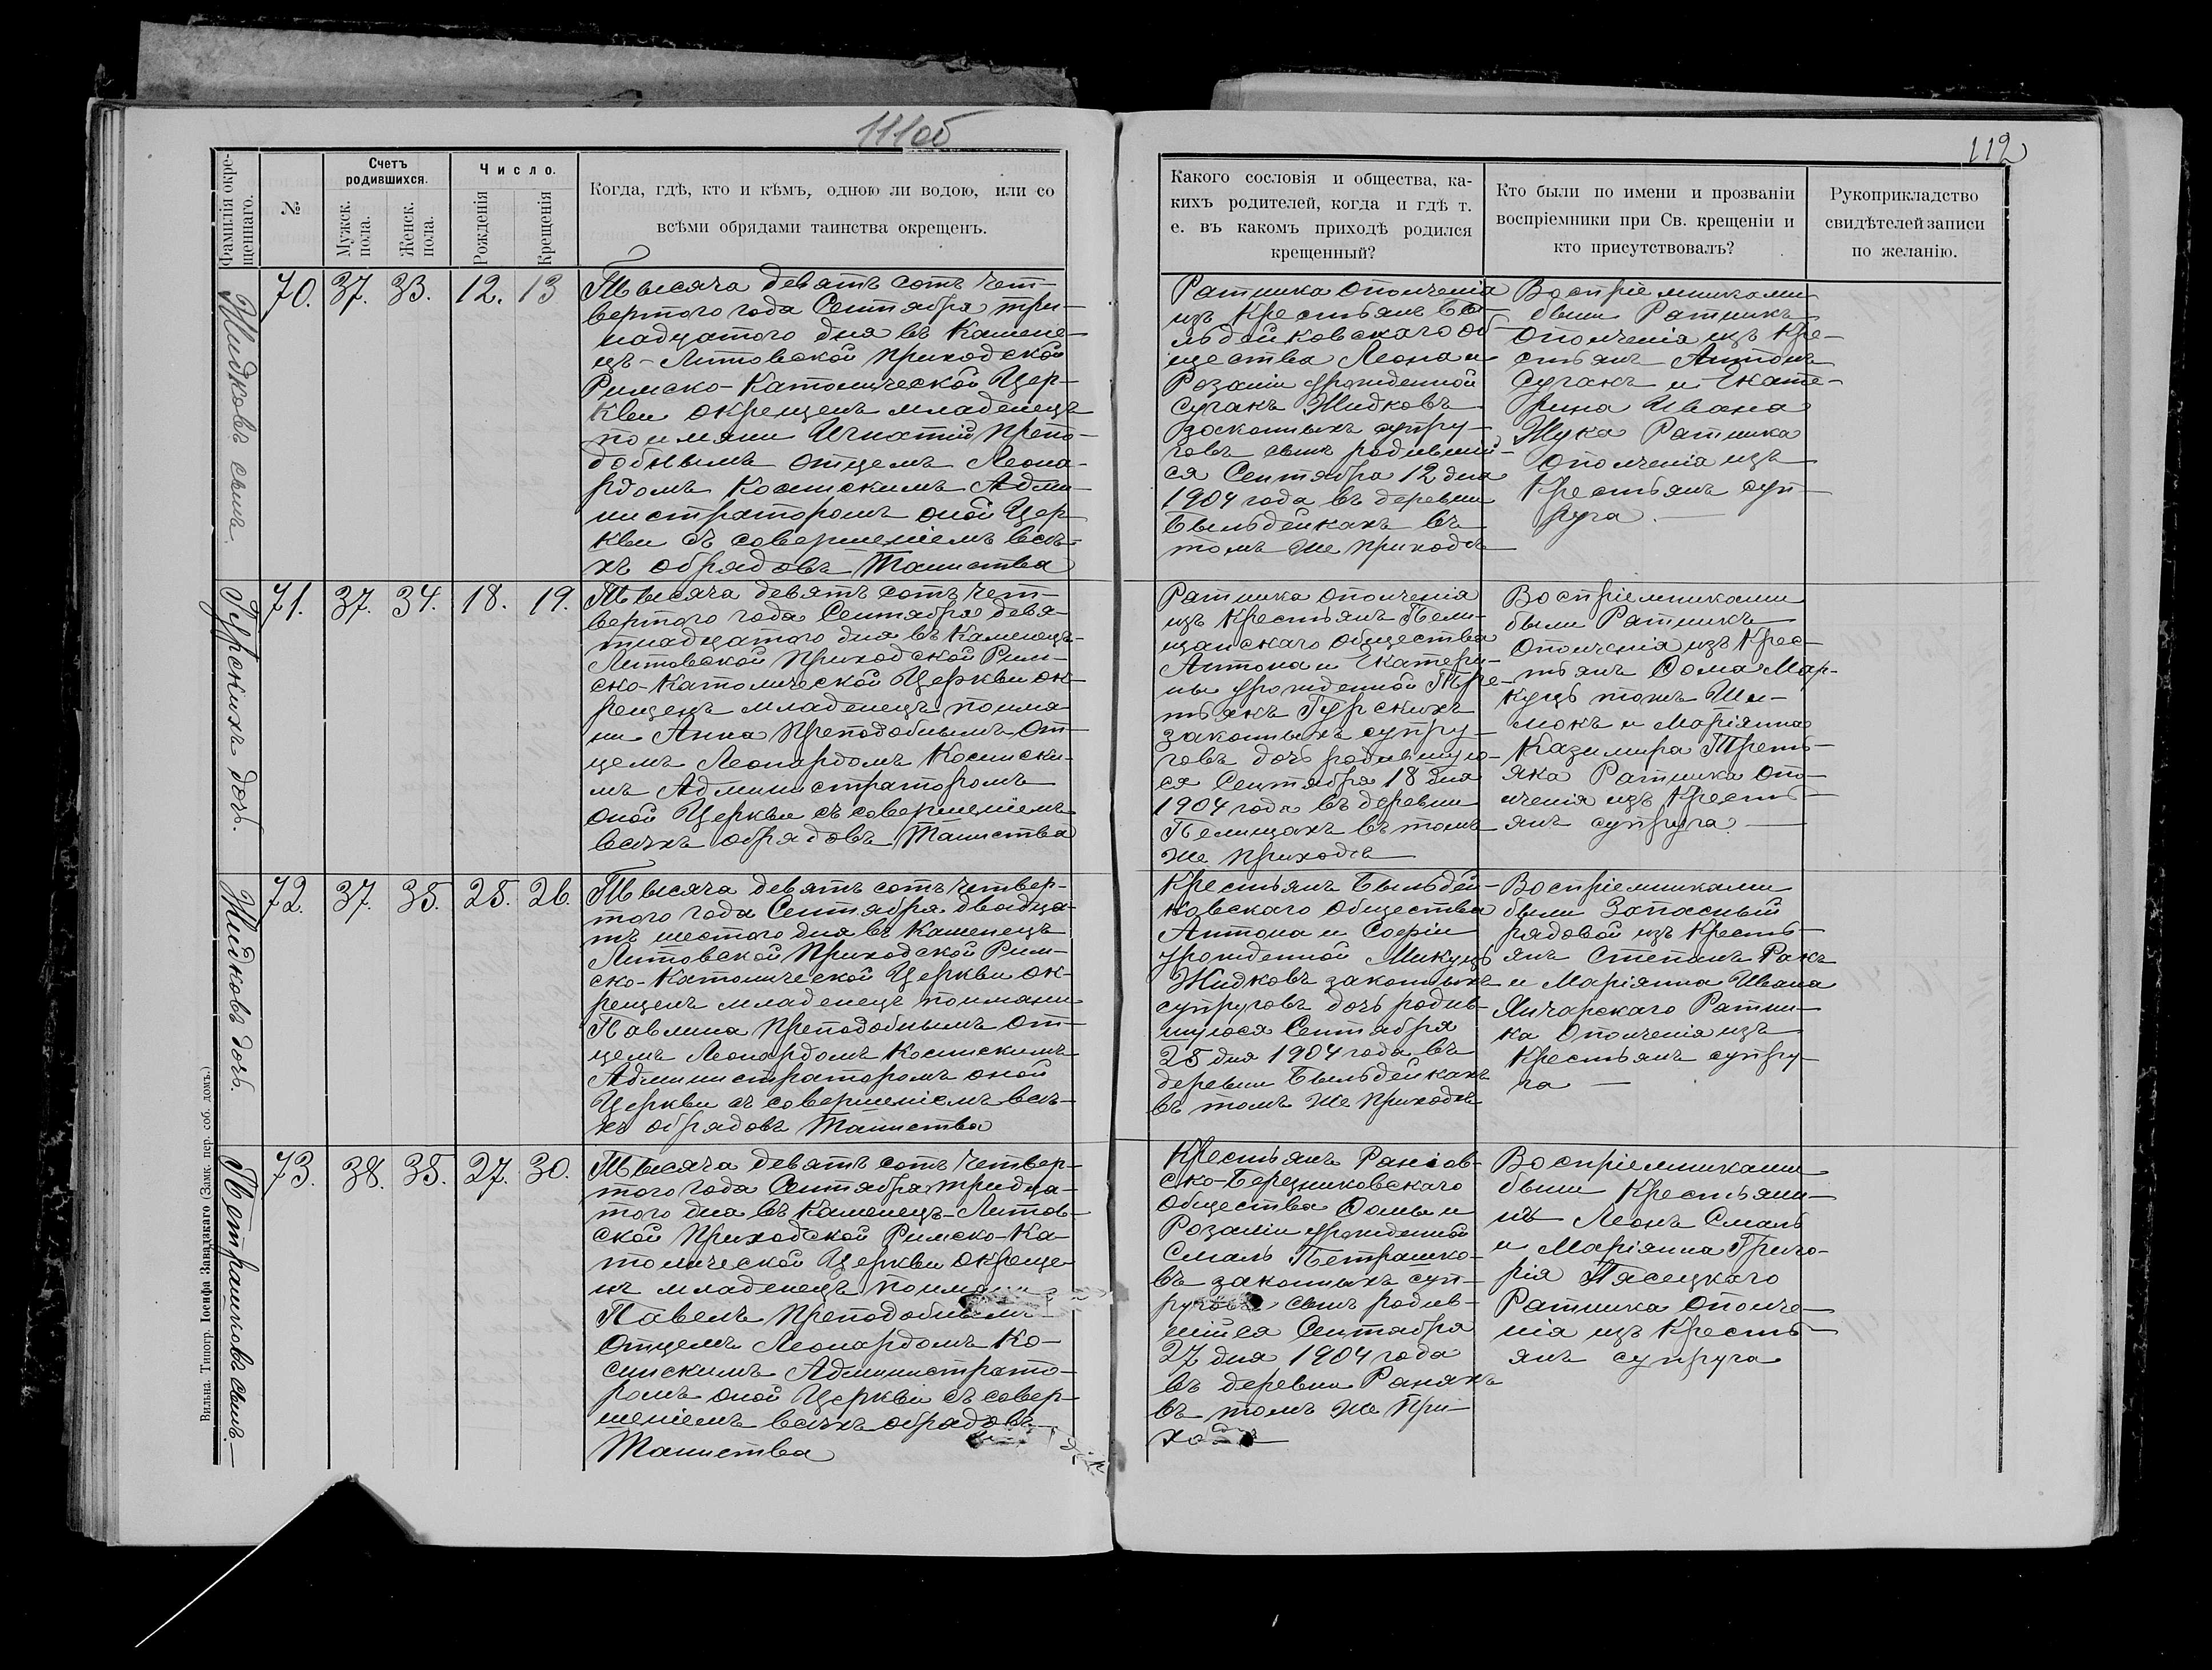 111об
112
Фамилія окре-
щеннаго.
№
Счетъ
родившихся.
Мужск.
пола.
Женск.
пола.
Число.
Рожденія
Крещенія
Когда, гдѣ, кто и кѣмъ, одною ли водою, или со
всѣми обрядами таинства окрещенъ.
Какого сословія и общества, ка-
кихъ родителей, когда и гдѣ т.
е. въ какомъ приходѣ родился
крещенный?
Кто были по имени и прозваніи
воспріемники при Св. крещеніи и
кто присутствовалъ?
Рукоприкладство
свидѣтелей записи
по желанію.
Жидковъ сынъ.
70. 37. 33. 12. 13
Тысяча девять сотъ чет-
вертого года Сентября три-
надцатого дня въ Камене-
цъ-Литовской Приходской
Римско-Католической Цер-
кви окрещенъ младенецъ
по имяни Игнатій Препо-
добнымъ Отцемъ Леона-
рдомъ Косинскимъ Адми-
нистраторомъ оной Цер-
кви съ совершеніемъ всѣ-
хъ обрядовъ Таинства
Ратника ополченія
изъ Крестьянъ Бы-
льдейковскаго об-
щества Леона и
Розаліи урожденной
Сугакъ Жидковъ
законныхъ супру-
говъ сынъ родившій-
ся Сентября 12 дня
1904 года въ деревни
Быльдейкахъ въ
томъ же приходѣ
Воспріемниками
были Ратникъ
Ополченія изъ Кре-
стьянъ Антонъ
Сугакъ и Екате-
рина Ивана
Жука Ратника
Ополченія изъ
Крестьянъ суп-
руга.
Гурскихъ дочь.
71. 37. 34. 18. 19.
Тысяча девять сотъ чет-
вертого года Сентября девя-
тнадцатого дня въ Каменецъ-
Литовской Приходской Рим-
ско-Католической Церкви ок-
рещенъ младенецъ по имя-
ни Анна Преподобнымъ От-
цемъ Леонардомъ Косински-
мъ Администраторомъ
оной Церкви съ совершеніемъ
всѣхъ обрядовъ Таинства
Ратника ополченія
изъ Крестьянъ Пели-
щанскаго общества
Антона и Екатери-
ны урожденной Тре-
тьякъ Гурскихъ
законныхъ супру-
говъ дочь родившую-
ся Сентября 18 дня
1904 года въ деревни
Пелищахъ въ томъ
же приходѣ
Воспріемниками
были Ратникъ
Ополченія изъ Крес-
тьянъ Ѳома Мар-
и Маріянна
Казимира Треть-
яка Ратника Опо-
лченія изъ Кресть-
янъ супруга.
Жидковъ дочь.
72. 37. 35. 25. 26.
Тысяча девять сотъ четвер-
того года Сентября двадца-
ть шестого дня въ Каменецъ
Литовской Приходской Рим-
ско-Католической Церкви ок-
рещенъ младенецъ по имяни
Павлина Преподобнымъ От-
цемъ Леонардомъ Косинскимъ
Администраторомъ оной
Церкви съ совершеніемъ всѣ-
хъ обрядовъ Таинства
Крестьянъ Быльдей-
ковскаго Общества
Антона и Софіи
урожденной Микуцъ
Жидковъ законныхъ
супруговъ дочь родив-
шуюся Сентября
25 дня 1904 года въ
деревни Быльдейкахъ
въ томъ же приходѣ
Воспріемниками
были Запасный
рядовой изъ Кресть-
янъ Степанъ Ракъ
и Маріянна Ивана
Ратни-
ка Ополченія изъ
Крестьянъ супру-
га
Петрашковъ сынъ.
73. 38. 35. 27. 30.
Тысяча девять сотъ четвер-
того года Сентября тридца-
того дня въ Каменецъ-Литов-
ской Приходской Римско-Ка-
толической Церкви окреще-
нъ младенецъ по имяни
Павелъ Преподобнымъ
Отцемъ Леонардомъ Ко-
синскимъ Администрато-
ромъ оной Церкви съ совер-
шеніемъ всѣхъ обрядовъ
Таинства
Крестьянъ
ско-Березниковскаго
Общества Ѳомы и
Розаліи урожденной
Смаль Петрашко-
въ законныхъ суп-
руговъ сынъ родив-
шійся Сентября
27 дня 1904 года
въ деревни
въ томъ же При-
ходѣ
Воспріемниками
были Крестьяни-
нъ Леонъ Смаль
и Маріянна Григо-
рія Пясецкаго
Ратника Ополче-
нія изъ Кресть-
янъ супруга
Вильна. Типогр. Іосифа Завадзкаго (Замк. пер. соб. домъ.)